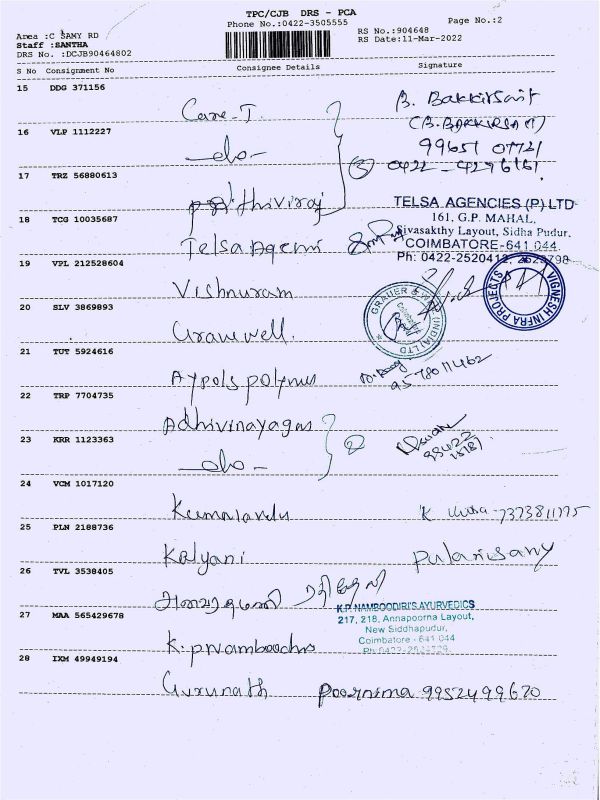 TPC/CJB DRS - PCA
Phone No.:0422-3505555
Page No.:2
Area :C SAMY RD
Staff :SANTHA
DRS No. :DCJB90464802
RS No.:904648
RS Date:11-Mar-2022
S No Consignment No Consignee Details Signature
15 DDG 371156
Care-T. B. Bakkirsait
16 VLP 1112227
-do- (B.BAKKIRSAIT)
99651 07721
17 TRZ 56880613
(3) 0422 - 4296161
Prithiviraj
18 TCG 10035687
TELSA AGENCIES (P) LTD
161, G.P. MAHAL,
Sivasakthy Layout, Sidha Pudur,
COIMBATORE-641 044.
Ph: 0422-2520412, 2523798
Telsa Agenci
19 VPL 212528604
Vishnuram
VIGNESH INFRA PROJECTS
20 SLV 3869893
Gravewell.
21 TUT 5924616
Aypols polymers
9578011462
22 TRP 7704735
Adhivinayagas
23 KRR 1123363
-do- (2)
24 VCM 1017120
K 7373811775
25 PLN 2188736
Kalyani Pulanisamy
26 TVL 3538405
27 MAA 565429678
K.P. NAMBOODIRI'S AYURVEDICS
217, 218, Annapoorna Layout,
New Siddhapudur,
Coimbatore - 641 044
28 IXM 49949194
Gurunath Poornima 9952499620